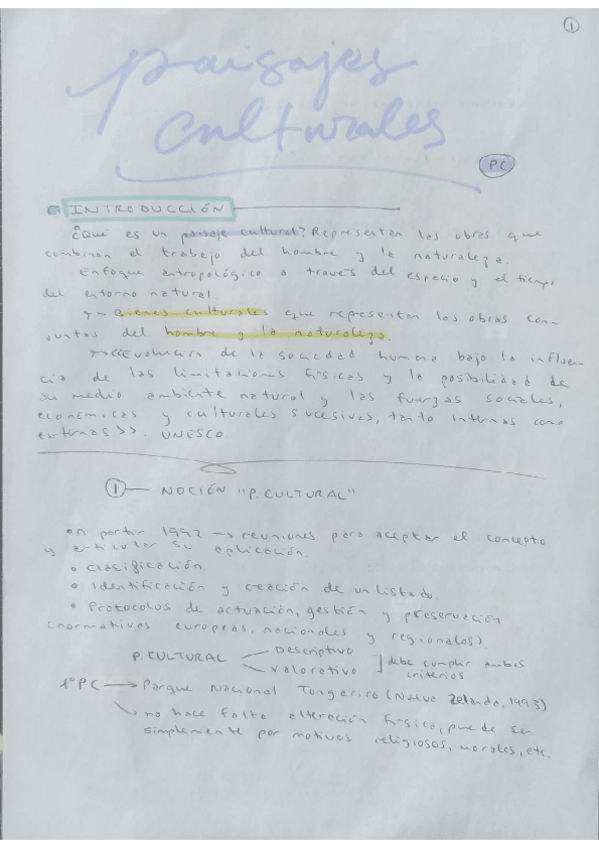 1
paisajes
culturales
PC
INTRODUCCIÓN
¿Qué es un paisaje cultural? Representan las obras que
combinan el trabajo del hombre y la naturaleza.
Enfoque antropológico a través del espacio y el tiempo
del entorno natural.
→ Bienes culturales que representan las obras con-
juntas del hombre y la naturaleza.
→ <<Evolución de la sociedad humana bajo la influen-
cia de las limitaciones físicas y la posibilidad de
su medio ambiente natural y las fuerzas sociales,
económicas y culturales sucesivas, tanto internas como
externas>>. UNESCO
1 — NOCIÓN "P.CULTURAL"
•A partir 1992 → reuniones para aceptar el concepto
y articular su aplicación.
• Clasificación.
• Identificación y creación de un listado.
• Protocolos de actuación, gestión y preservación
(normativas europeas, nacionales y regionales).
P.CULTURAL — Descriptivo
— Valorativo ] debe cumplir ambos
criterios
1º PC → Parque Nacional Tongariro (Nueva Zelanda, 1993)
↳ no hace falta alteración física, puede ser
simplemente por motivos religiosos, morales, etc.